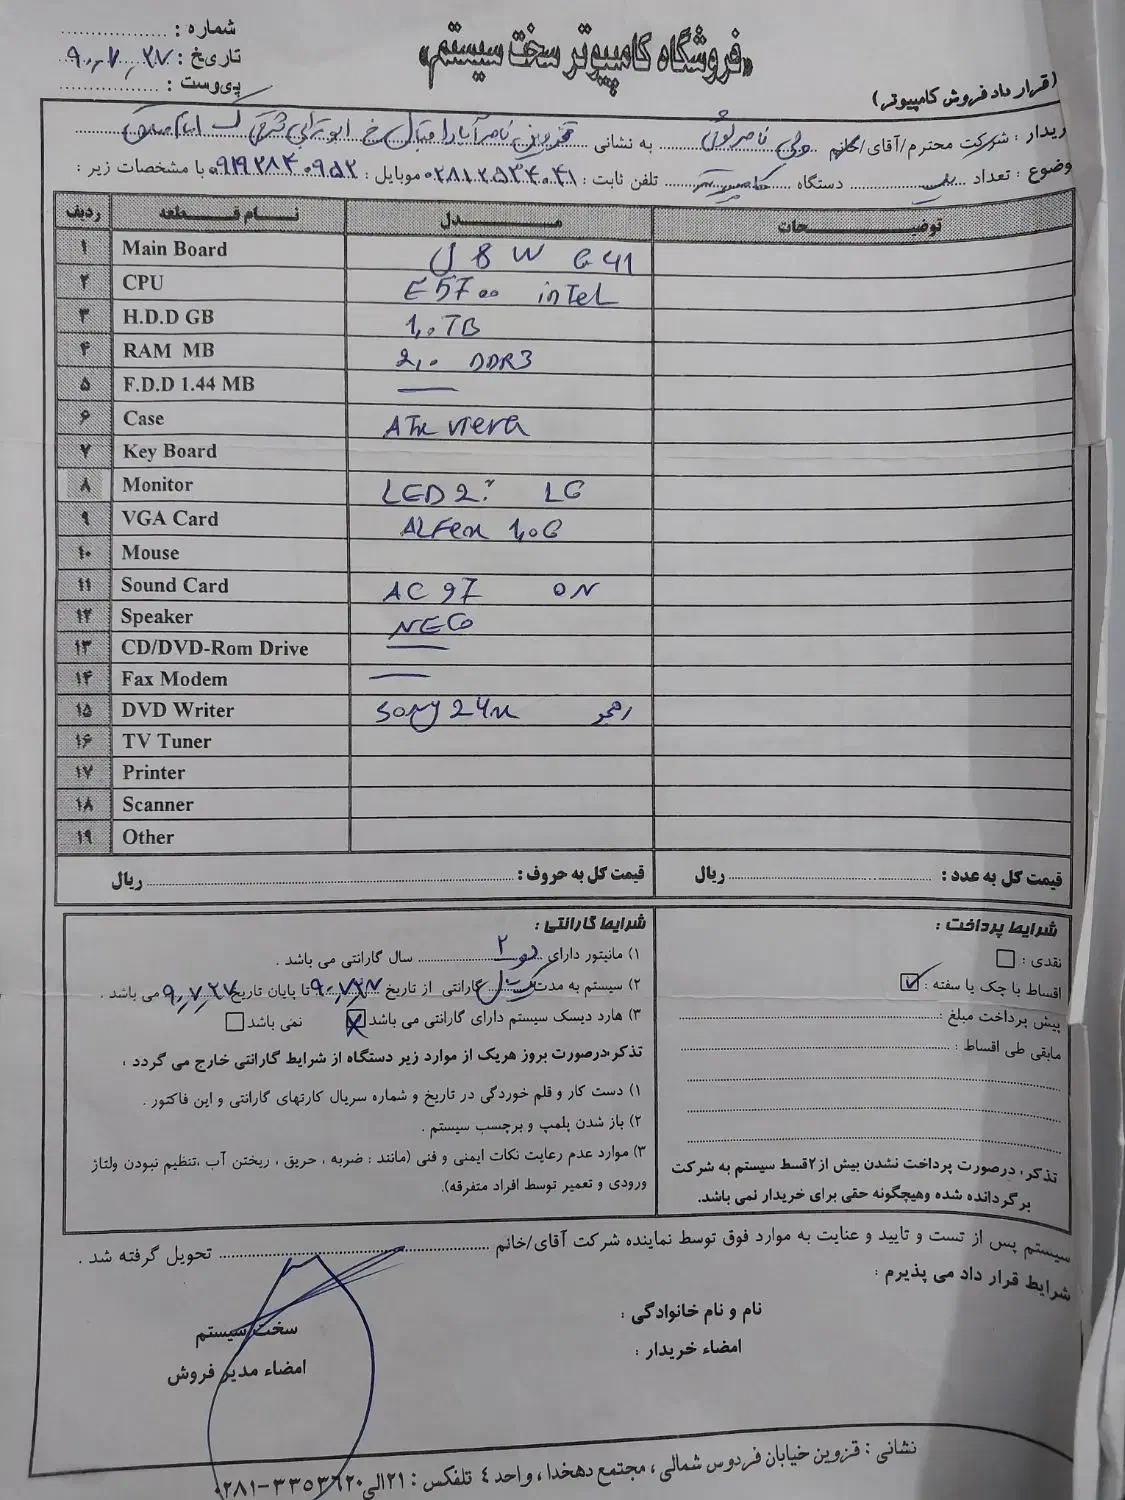 «فروشگاه کامپیوتر سخت سیستم»
شماره : ..................
تاریخ : ۹۰,۷,۲۷
پیوست : ..................
(قرار داد فروش کامپیوتر)
ریدار : شرکت محترم/آقای/خانم ولی به نشانی قزوین ناصرآباد
وضوع : تعداد یک دستگاه کامپیوتر تلفن ثابت : ۰۲۸۱۲۵۳۴۰۴۱ موبایل : ۰۹۱۹۲۸۴۰۹۵۲ با مشخصات زیر :
ردیف نام قطعه مدل توضیحات
۱ Main Board G41
۲ CPU E5700 intel
۳ H.D.D GB 1,0 TB
۴ RAM MB 2,0 DDR3
۵ F.D.D 1.44 MB —
۶ Case ATX viera
۷ Key Board
۸ Monitor LED 20" LG
۹ VGA Card 1,0G
۱۰ Mouse
۱۱ Sound Card AC 97 ON
۱۲ Speaker
۱۳ CD/DVD-Rom Drive —
۱۴ Fax Modem —
۱۵ DVD Writer sony 24x
۱۶ TV Tuner
۱۷ Printer
۱۸ Scanner
۱۹ Other
قیمت کل به عدد : .................. ریال
قیمت کل به حروف : .................. ریال
شرایط پرداخت :
نقدی : ☐
اقساط با چک یا سفته : ☑
پیش پرداخت مبلغ : ..................
مابقی طی اقساط : ..................
تذکر، درصورت پرداخت نشدن بیش از ۲ قسط سیستم به شرکت
برگردانده شده وهیچگونه حقی برای خریدار نمی باشد.
شرایط گارانتی :
۱) مانیتور دارای دو ۲ سال گارانتی می باشد .
۲) سیستم به مدت یکسال گارانتی از تاریخ ۹۰,۷,۲۷ تا پایان تاریخ ۹۰,۷,۲۷ می باشد .
۳) هارد دیسک سیستم دارای گارانتی می باشد ☒ نمی باشد ☐
تذکر،درصورت بروز هریک از موارد زیر دستگاه از شرایط گارانتی خارج می گردد ،
۱) دست کار و قلم خوردگی در تاریخ و شماره سریال کارتهای گارانتی و این فاکتور .
۲) باز شدن پلمپ و برچسب سیستم .
۳) موارد عدم رعایت نکات ایمنی و فنی (مانند : ضربه ، حریق ، ریختن آب ،تنظیم نبودن ولتاژ
ورودی و تعمیر توسط افراد متفرقه).
سیستم پس از تست و تایید و عنایت به موارد فوق توسط نماینده شرکت آقای/خانم .................. تحویل گرفته شد .
شرایط قرار داد می پذیرم :
نام و نام خانوادگی :
امضاء خریدار :
سخت سیستم
امضاء مدیر فروش
نشانی : قزوین خیابان فردوس شمالی ، مجتمع دهخدا ، واحد ٤ تلفکس : ۲۱الی۳۳۵۳۶۲۰-۰۲۸۱